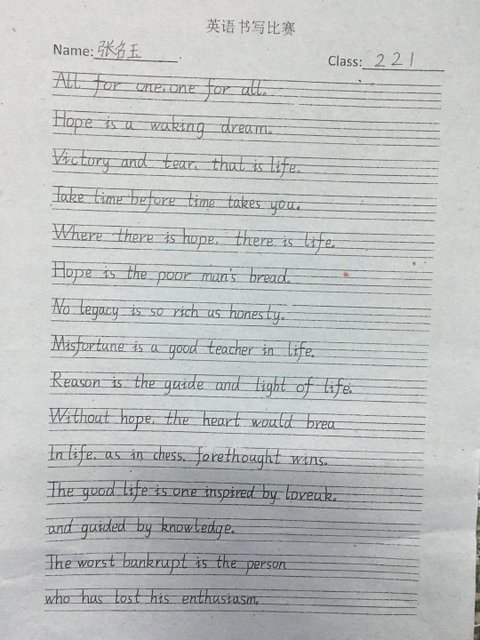 英语书写比赛
Name: 张名玉 Class: 221
All for one, one for all.
Hope is a waking dream.
Victory and tear, that is life.
Take time before time takes you.
Where there is hope, there is life.
Hope is the poor man's bread.
No legacy is so rich as honesty.
Misfortune is a good teacher in life.
Reason is the guide and light of life.
Without hope, the heart would brea
In life, as in chess, forethought wins.
The good life is one inspired by loveuk.
and guided by knowledge.
The worst bankrupt is the person
who has lost his enthusiasm.